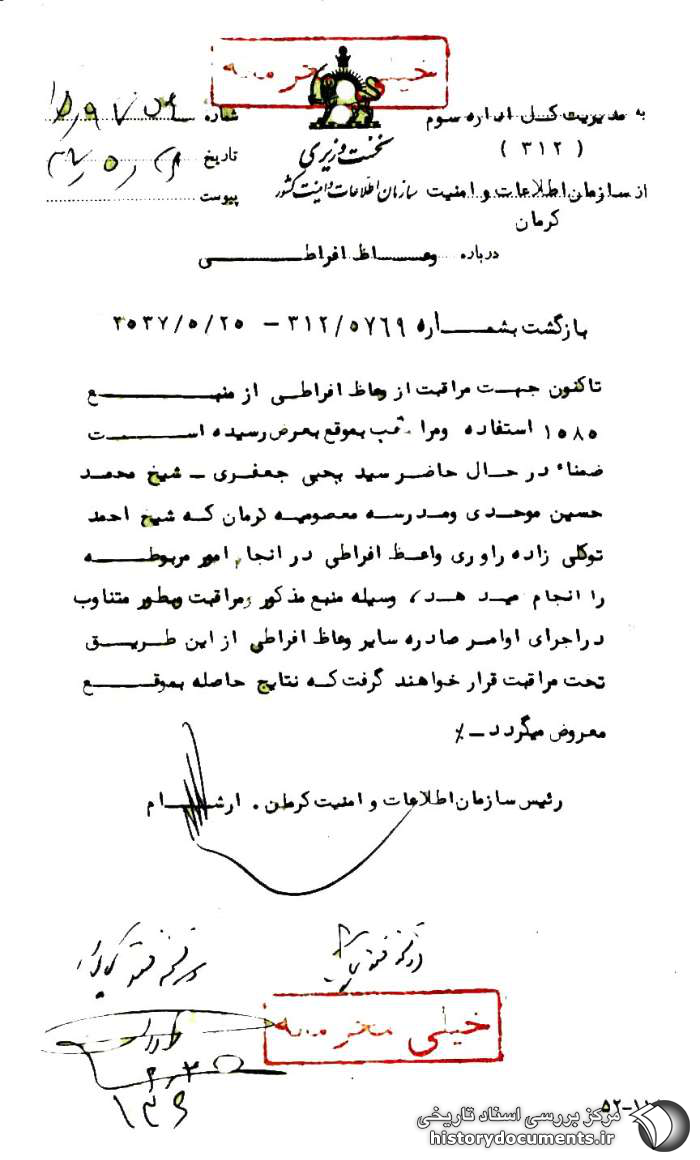 خیلی محرمانه
به مدیریت کل اداره سوم
( ۳۱۲ )
نخست وزیری
سازمان اطلاعات و امنیت کشور
از سازمان اطلاعات و امنیت
کرمان
شماره
تاریخ
پیوست
درباره وعاظ افراطی
بازگشت بشماره ۳۱۲/۵۷۶۹ – ۳۰۳۷/۵/۲۰
تاکنون جهت مراقبت از وعاظ افراطی از منبع
۱۵۸۵ استفاده ومراتب بموقع بعرض رسیده است
ضمناً در حال حاضر سید یحیی جعفری – شیخ محمد
حسین موحدی ومدرسه معصومیه کرمان که شیخ احمد
توکلی زاده راوری واعظ افراطی در انجام امور مربوطه
را انجام میدهد، وسیله منبع مذکور مراقبت وبطور متناوب
دراجرای اوامر صادره سایر وعاظ افراطی از این طریق
تحت مراقبت قرار خواهند گرفت که نتایج حاصله بموقع
معروض میگردد – ٪
رئیس سازمان اطلاعات و امنیت کرمان . ارشام
خیلی محرمانه
مرکز بررسی اسناد تاریخی
historydocuments.ir